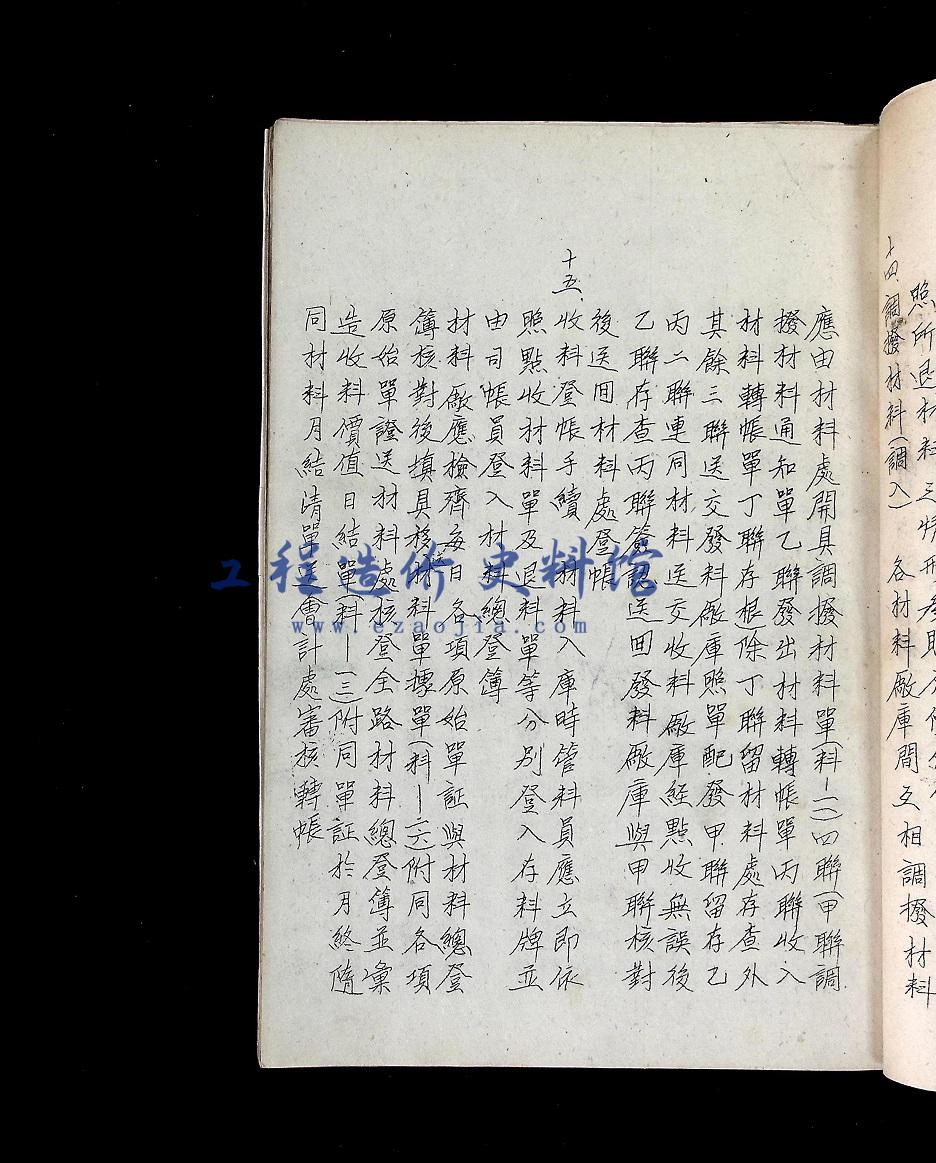 照所退材料之情形
十四、調撥材料(調入)各材料廠庫間互相調撥材料
應由材料處開具調撥材料單(料-一一)四聯(甲聯調
撥材料通知單乙聯發出材料轉帳單丙聯收入
材料轉帳單丁聯存根)除丁聯留材料處存查外
其餘三聯送交發料廠庫照單配發甲聯留存乙
丙二聯連同材料送交收料廠庫經點收無誤後
乙聯存查丙聯簽認送回發料廠庫與甲聯核對
後送回材料處登帳
十五、收料登帳手續 材料入庫時管料員應立即依
照點收材料單及退料單等分別登入存料牌並
由司帳員登入材料總登簿
材料廠應檢齊每日各項原始單証與材料總登
簿核對後填具移送材料單據單(料-二六)附同各項
原始單證送材料處核登全路材料總登簿並彙
造收料價值日結單(料-一三)附同單証於月終隨
同材料月結清單送會計處審核轉帳
工程造价史料馆
www.ezaojia.com